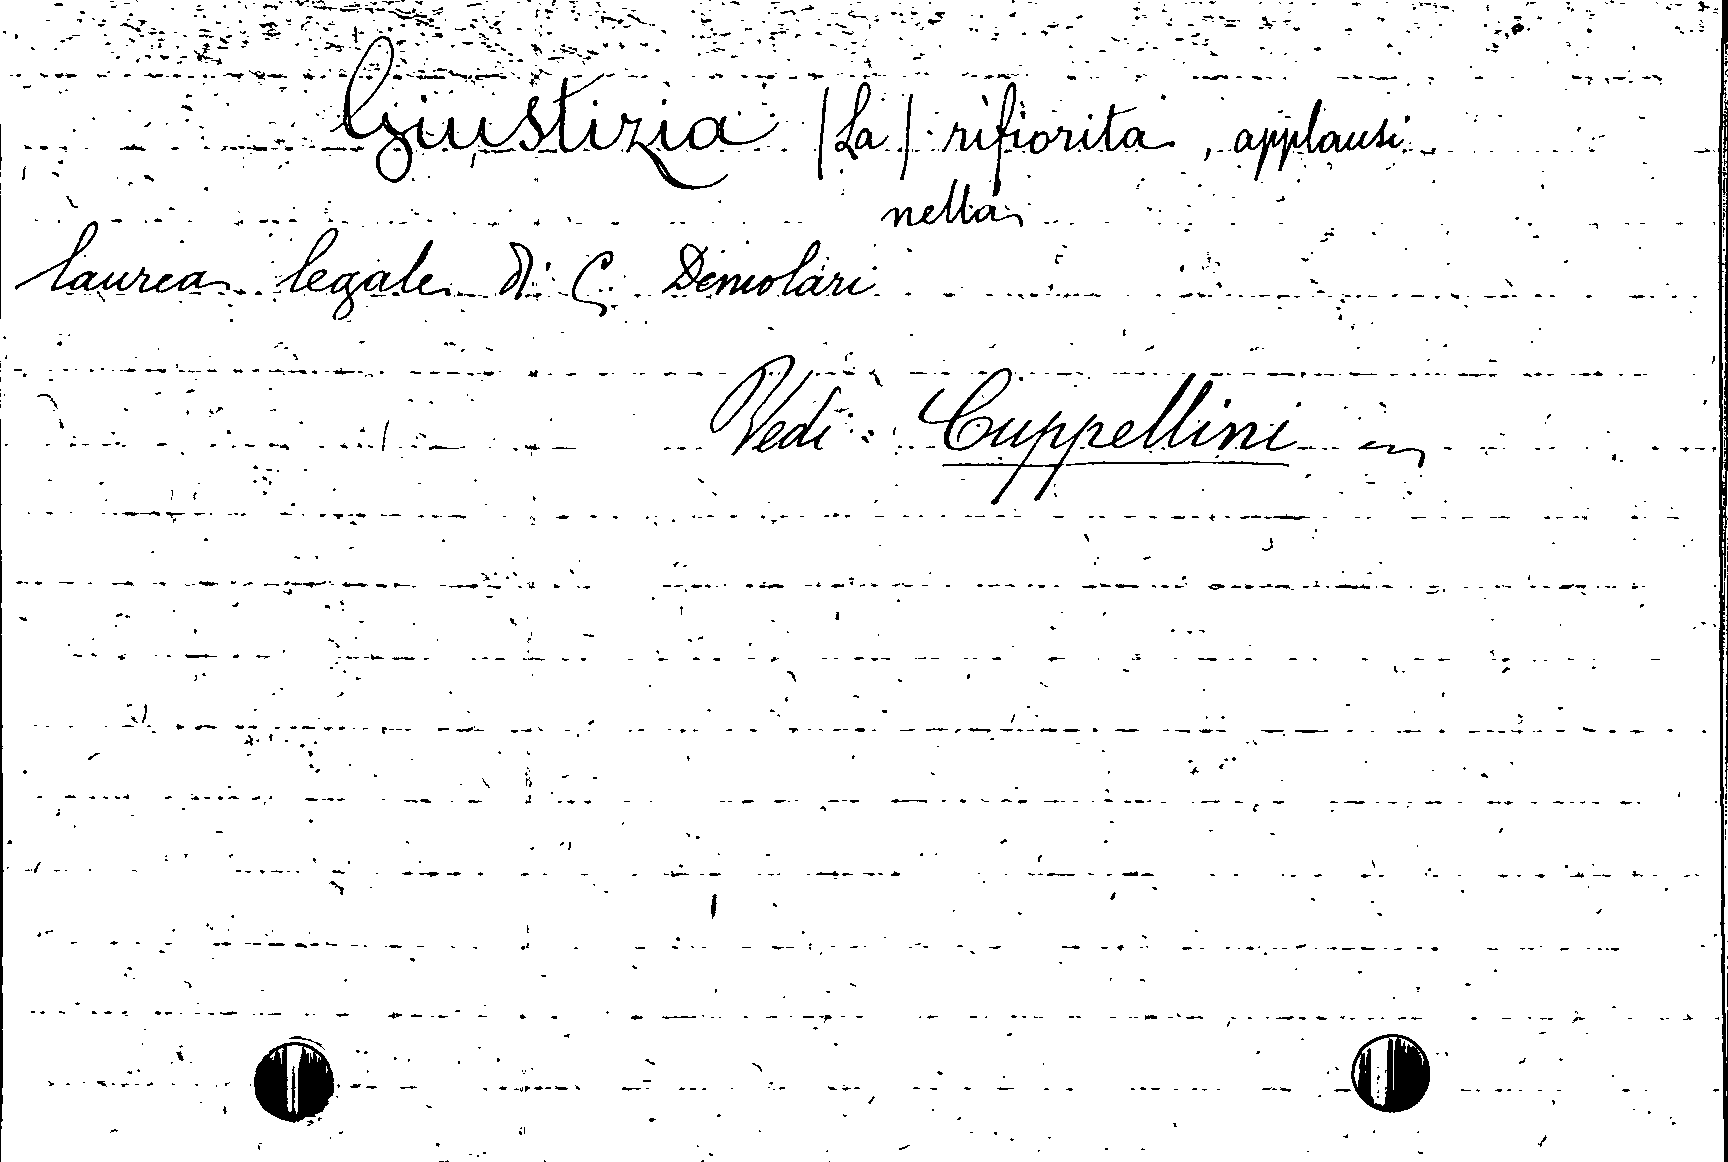 Giustizia (La) rifiorita, applausi
nella
laurea legale di C. Demolari
Vedi: Cuppellini